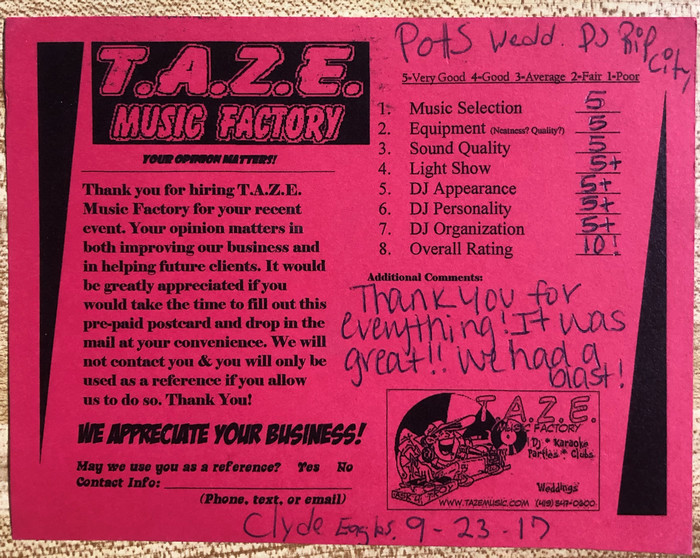 T.A.Z.E.
MUSIC FACTORY
YOUR OPINION MATTERS!
Thank you for hiring T.A.Z.E.
Music Factory for your recent
event. Your opinion matters in
both improving our business and
in helping future clients. It would
be greatly appreciated if you
would take the time to fill out this
pre-paid postcard and drop in the
mail at your convenience. We will
not contact you & you will only be
used as a reference if you allow
us to do so. Thank You!
WE APPRECIATE YOUR BUSINESS!
May we use you as a reference? Yes No
Contact Info:
(Phone, text, or email)
Potts Wedd. DJ Rip City
5-Very Good 4-Good 3-Average 2-Fair 1-Poor
1. Music Selection 5
2. Equipment (Neatness? Quality?) 5
3. Sound Quality 5
4. Light Show 5+
5. DJ Appearance 5+
6. DJ Personality 5+
7. DJ Organization 5+
8. Overall Rating 10!
Additional Comments:
Thank you for
everything! It was
great!! We had a
blast!
T.A.Z.E.
MUSIC FACTORY
Dj * Karaoke
Parties * Clubs
Weddings
WWW.TAZEMUSIC.COM (419) 547-0600
Clyde Eagles. 9-23-17